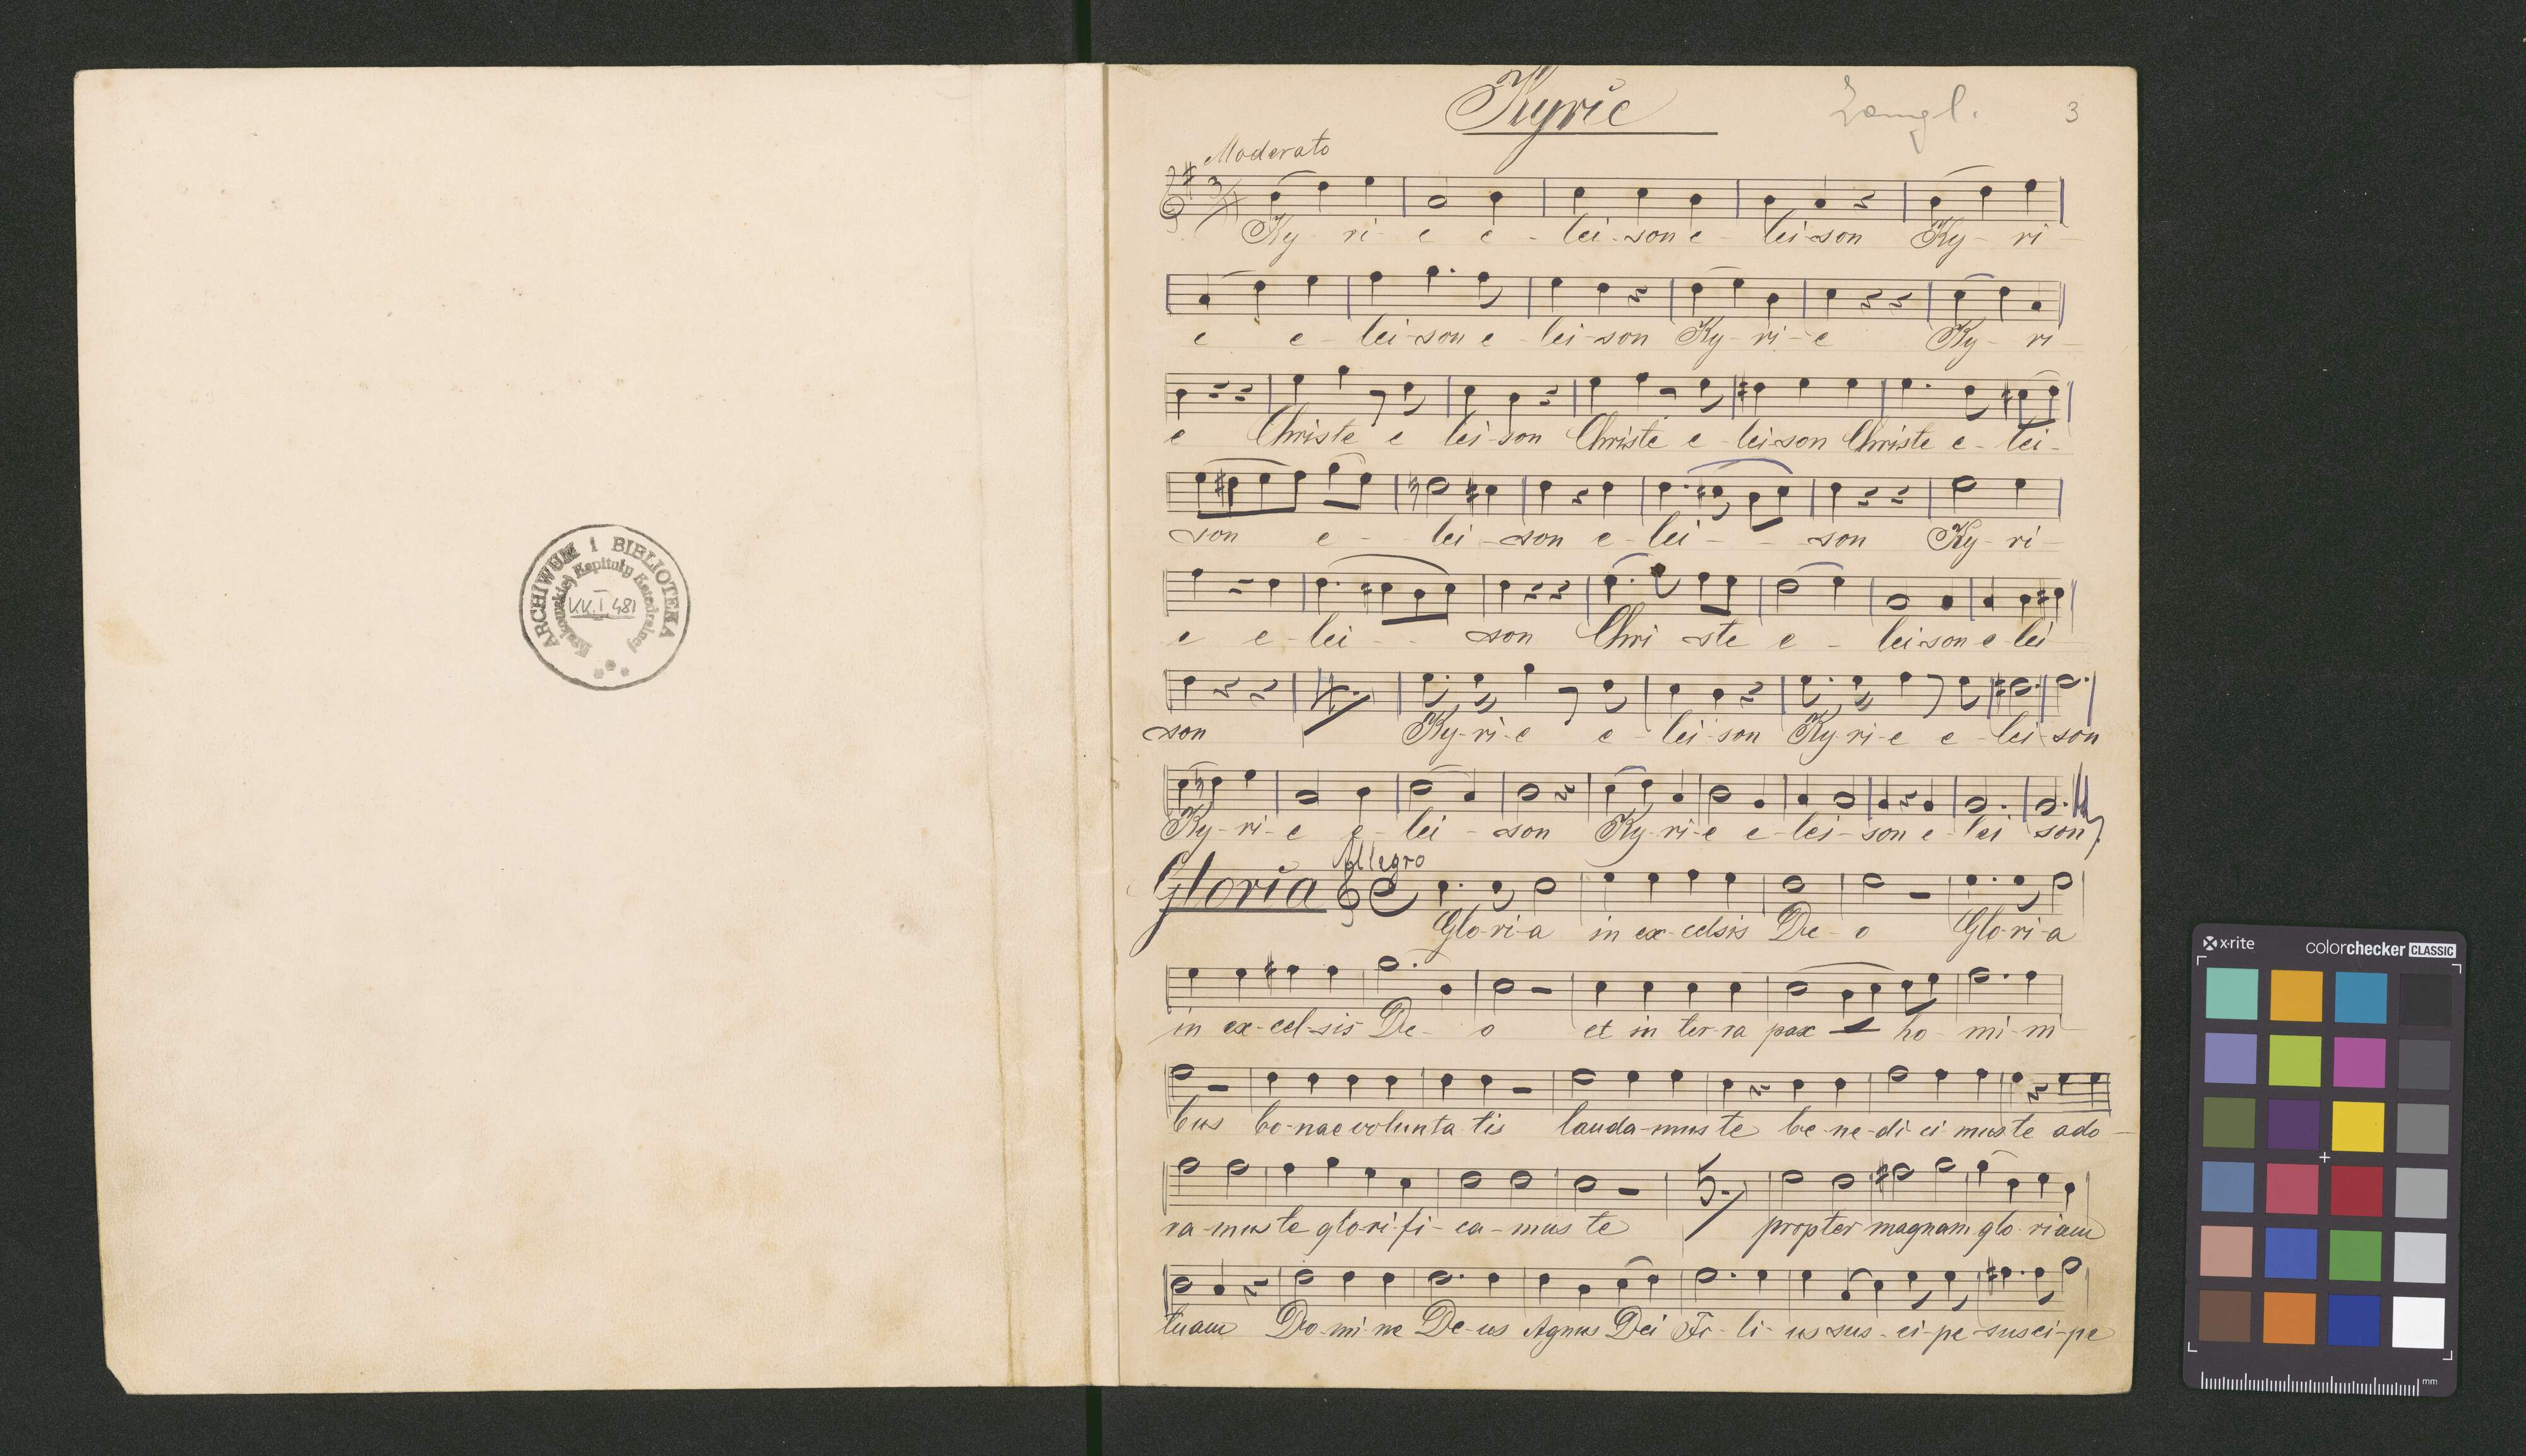 ARCHIWUM I BIBLIOTEKA
Krakowskiej Kapituły Katedralnej
VV. I 481
Kyrie
3
Moderato
3/4
Ky - ri - e e - lei - son e - lei - son Ky - ri -
e e - lei - son e - lei - son Ky - ri - e Ky - ri -
e Christe e lei - son Christe e - lei - son Christe e - lei -
son e - - lei - son e - lei - - son Ky - ri -
e e - lei - - son Chri - ste e - lei - son e - lei
son Ky - ri - e e - lei - son Ky - ri - e e - lei - son
Ky - ri - e e - lei - son Ky - ri - e e - lei - son e - lei son
Allegro
Gloria
Glo - ri - a in ex - celsis De - o Glo - ri - a
in ex - cel - sis De - o et in ter - ra pax ho - mi - ni -
bus bo - nae volunta tis lauda - mus te be - ne - di ci mus te ado -
ra - mus te glo - ri - fi - ca - mus te 5. propter magnam glo riam
tuam Do - mi - ne De - us Agnus Dei Fi - li - us sus - ci - pe - susci - pe
x-rite
colorchecker CLASSIC
mm